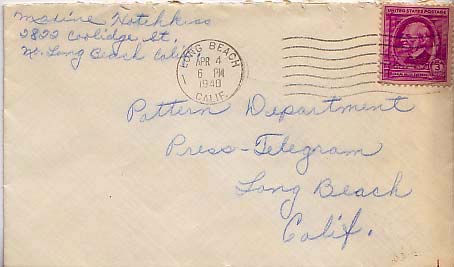 Maxine Hotchkiss
2822 Coolidge St.
No. Long Beach Calif.
LONG BEACH
APR 4
6 PM
1940
CALIF.
UNITED STATES POSTAGE
3
Pattern Department
Press-Telegram
Long Beach
Calif.